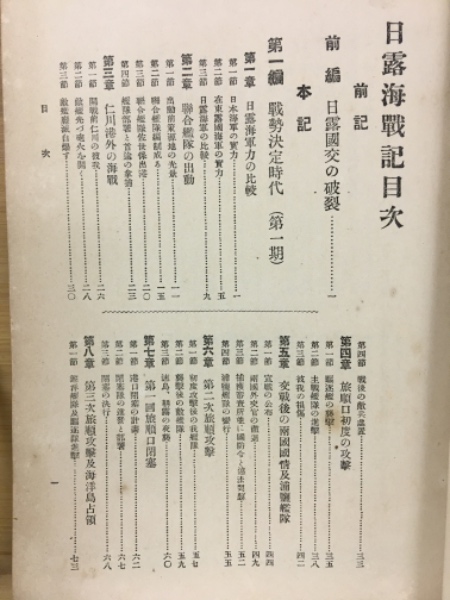 日露海戰記目次
前記
前編 日露國交の破裂…………一
本記
第一編 戰勢決定時代（第一期）
第一章 日露海軍力の比較
第一節 日本海軍の實力…………一
第二節 在東露國海軍の實力…………五
第三節 日露海軍の比較…………九
第二章 聯合艦隊の出動
第一節 出動前軍港地の光景…………一一
第二節 聯合艦隊編制成る…………一五
第三節 聯合艦隊佐世保出港…………二〇
第四節 艦隊部署と首途の拿捕…………二三
第三章 仁川港外の海戰
第一節 開戰前仁川の彼我…………二六
第二節 敵艦先づ砲火を開く…………二八
第三節 敵艦悉く自爆す…………三〇
目次
第四節 戰後の敵兵處置…………三三
第四章 旅順口初度の攻擊
第一節 驅逐艦の襲擊…………三五
第二節 主戰艦隊の進擊…………三八
第三節 彼我の損傷…………四二
第五章 交戰後の兩國國情及浦鹽艦隊
第一節 宣戰の公布…………四四
第二節 兩國外交官の撤退…………四九
第三節 捕獲審檢所並に國際法違法問題…………五二
第四節 浦鹽艦隊の蠻行…………五五
第六章 第二次旅順攻擊
第一節 初度攻擊後の我艦隊…………五七
第二節 襲擊後の敵艦隊…………五九
第三節 速鳥、朝霧の夜襲…………六〇
第七章 第一回旅順口閉塞
第一節 港口閉塞の計畫…………六二
第二節 閉塞隊の進發と部署…………六七
第三節 閉塞の決行…………六八
第八章 第三次旅順攻擊及海洋島占領
第一節 …………七三
一